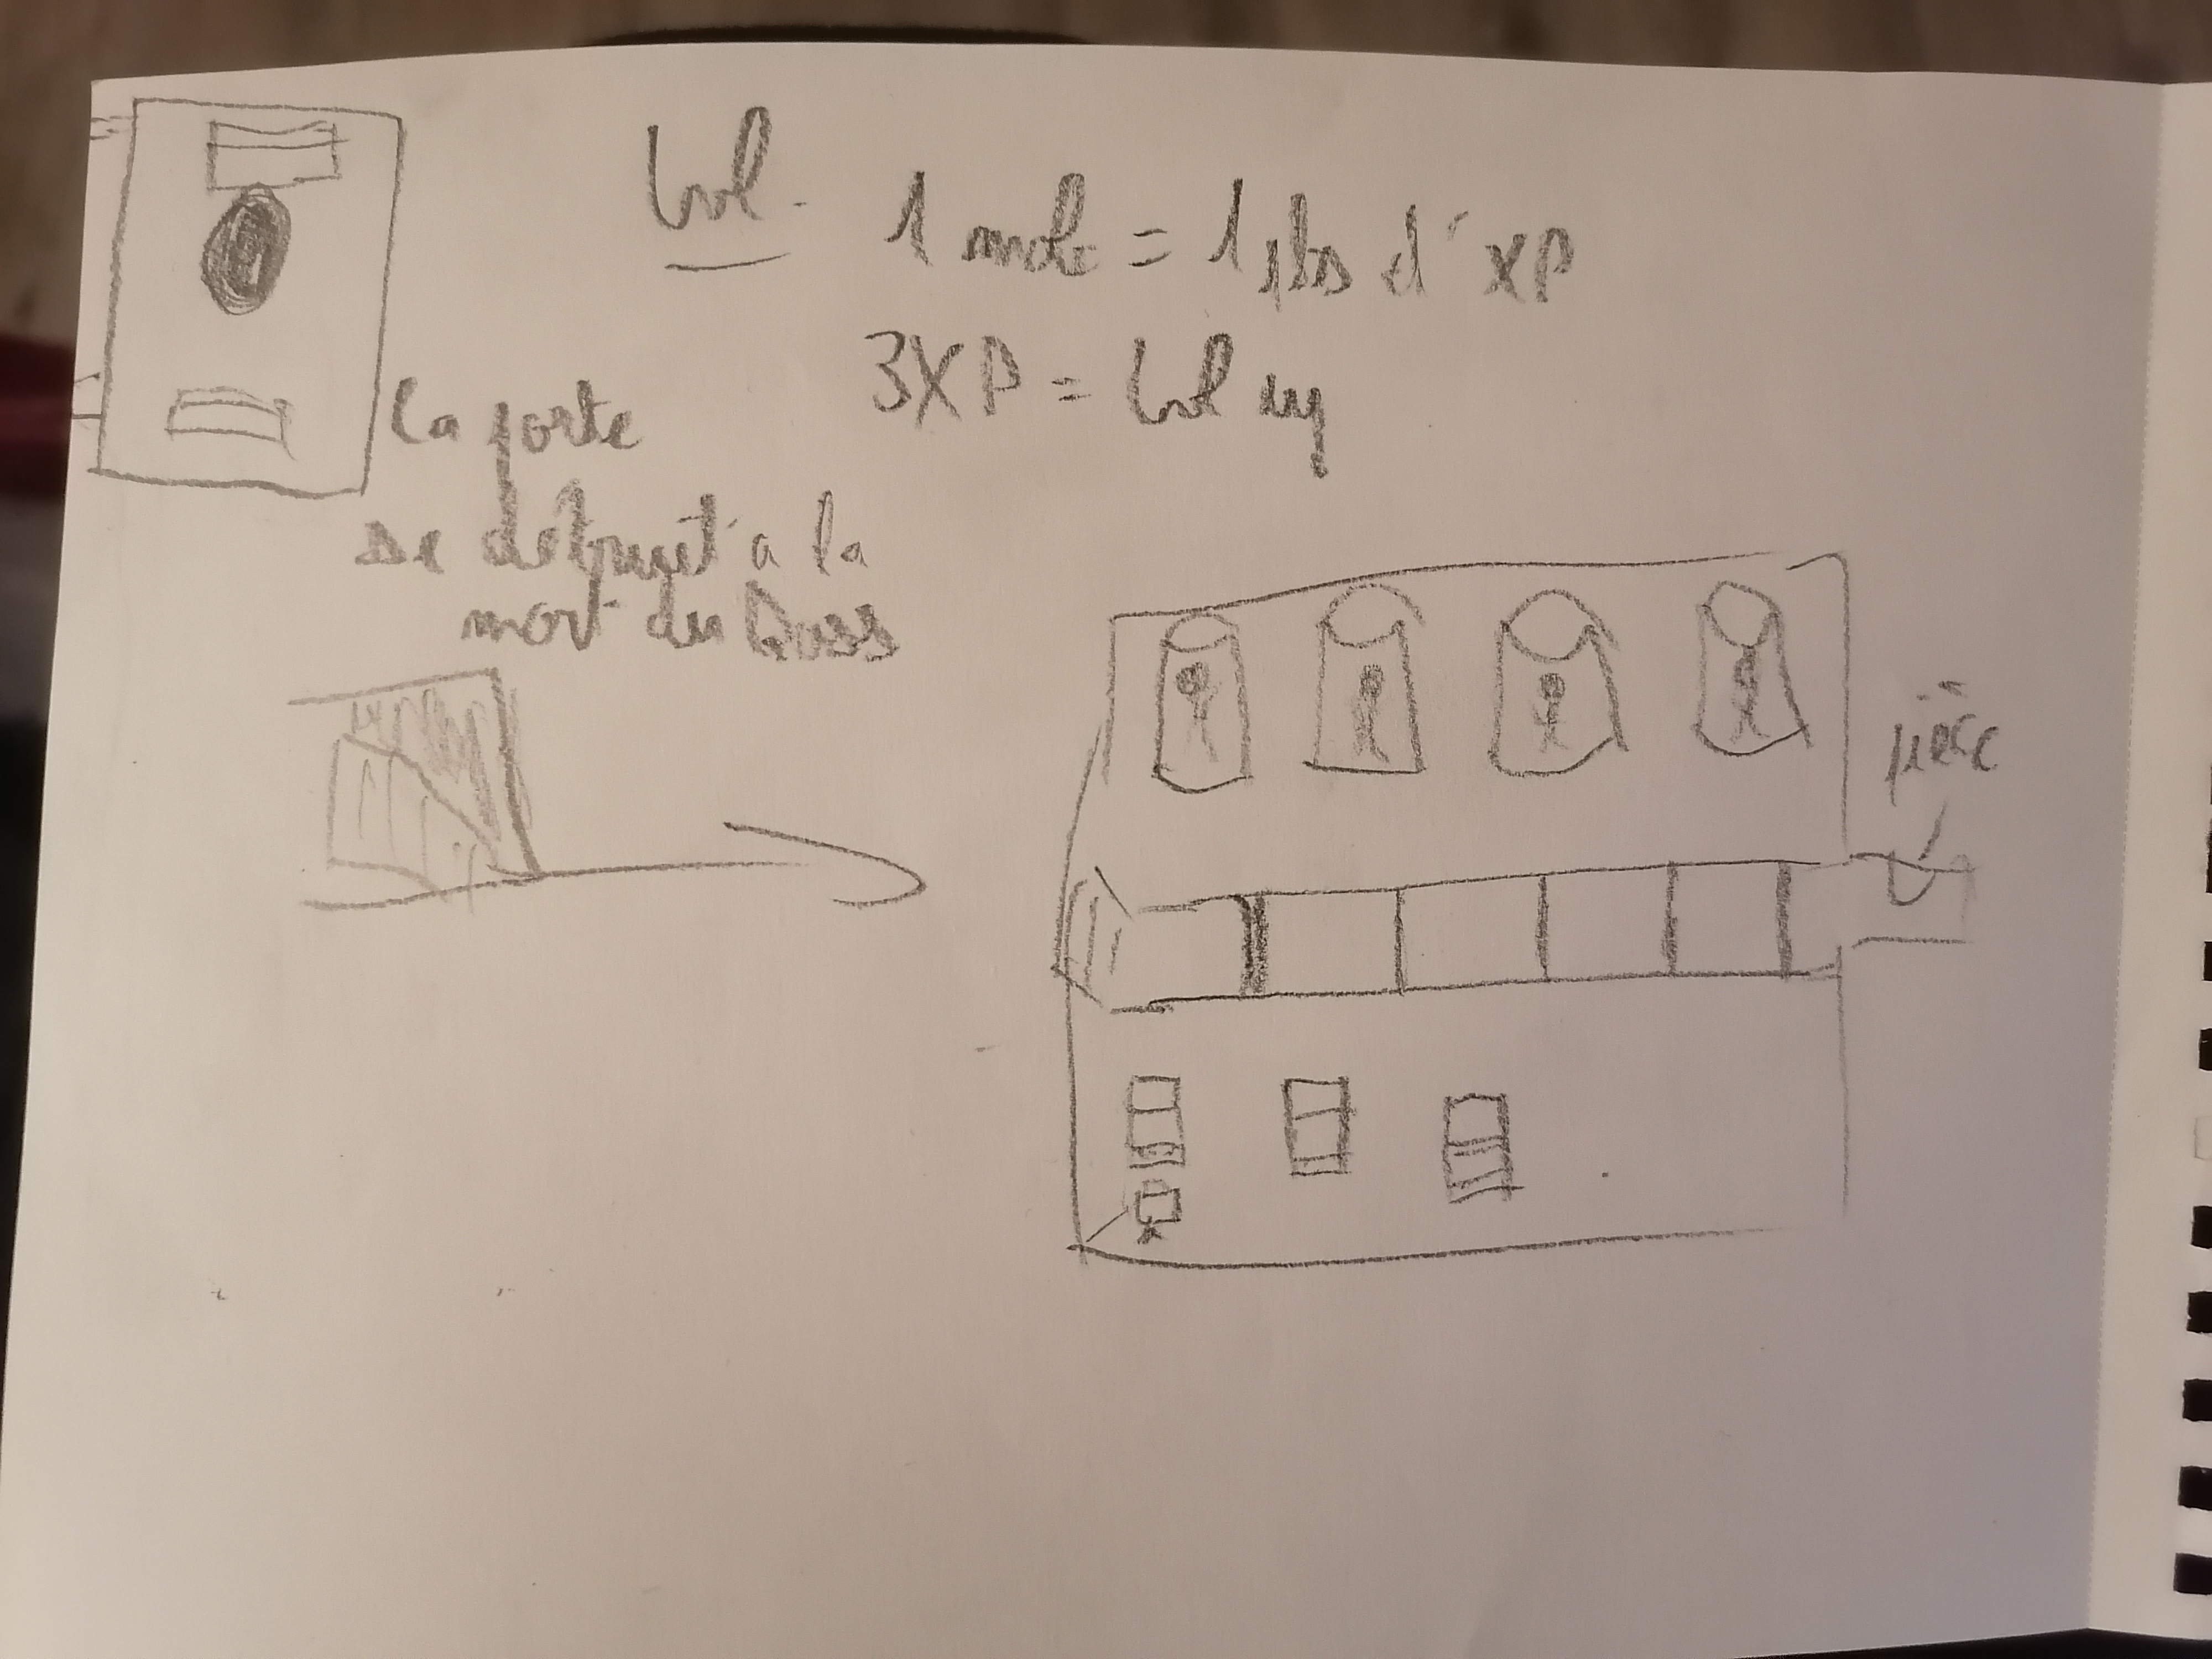 Lvl.
1 mob = 1 pts d'XP
3XP = Lvl up
la porte
se detruit a la
mort du Boss
pièce